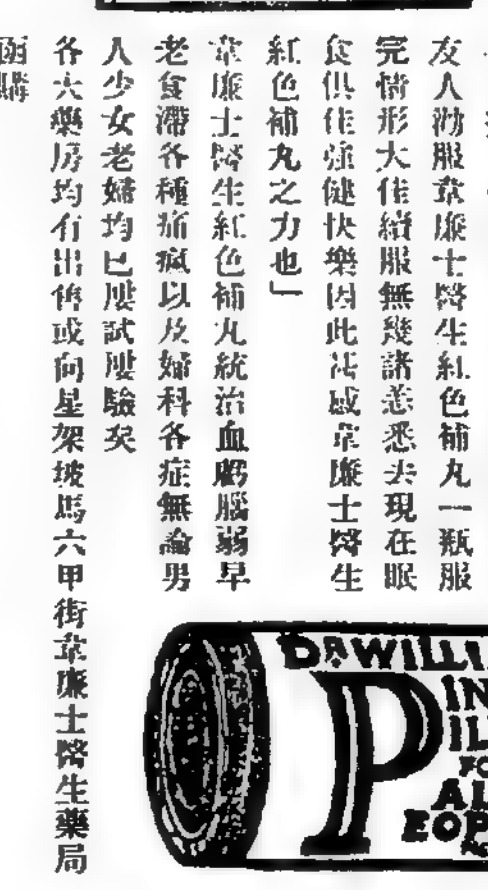 友人勸服韋廉士醫生紅色補丸一瓶服
完情形大佳續服無幾諸恙悉去現在眠
食俱佳強健快樂因此甚感韋廉士醫生
紅色補丸之力也」
韋廉士醫生紅色補丸統治血虧腦弱早
老食滯各種痛瘋以及婦科各症無論男
人少女老婦均已屢試屢驗矣
各大藥房均有出售或向星架坡馬六甲街韋廉士醫生藥局
函購
DR WILLI
PIN
ILL
FO
AL
EOP